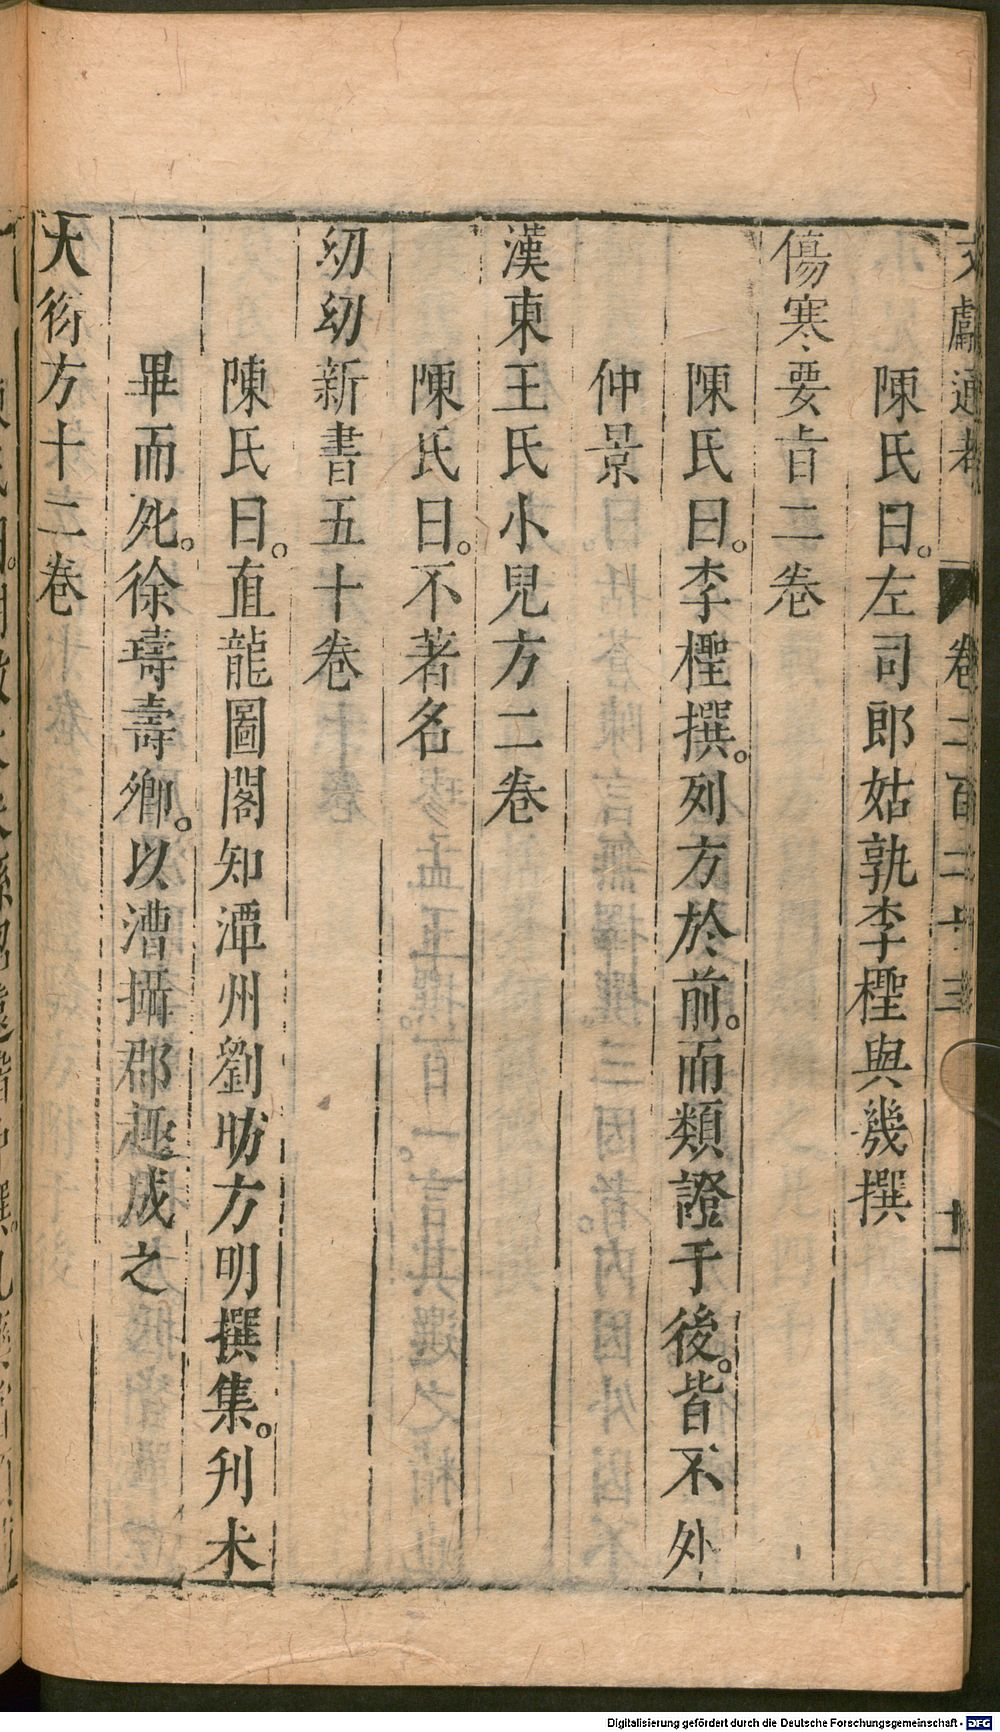 文獻通考 卷二百二十三 十一
陳氏曰。左司郎姑孰李檉與幾撰
傷寒要旨二卷
陳氏曰。李檉撰。列方於前。而類證于後。皆不外
仲景
漢東王氏小兒方二卷
陳氏曰。不著名
幼幼新書五十卷
陳氏曰。直龍圖閣知潭州劉昉方明撰集。刋未
畢而死。徐璹壽卿。以漕攝郡趣成之
大衍方十二卷
Digitalisierung gefördert durch die Deutsche Forschungsgemeinschaft - DFG